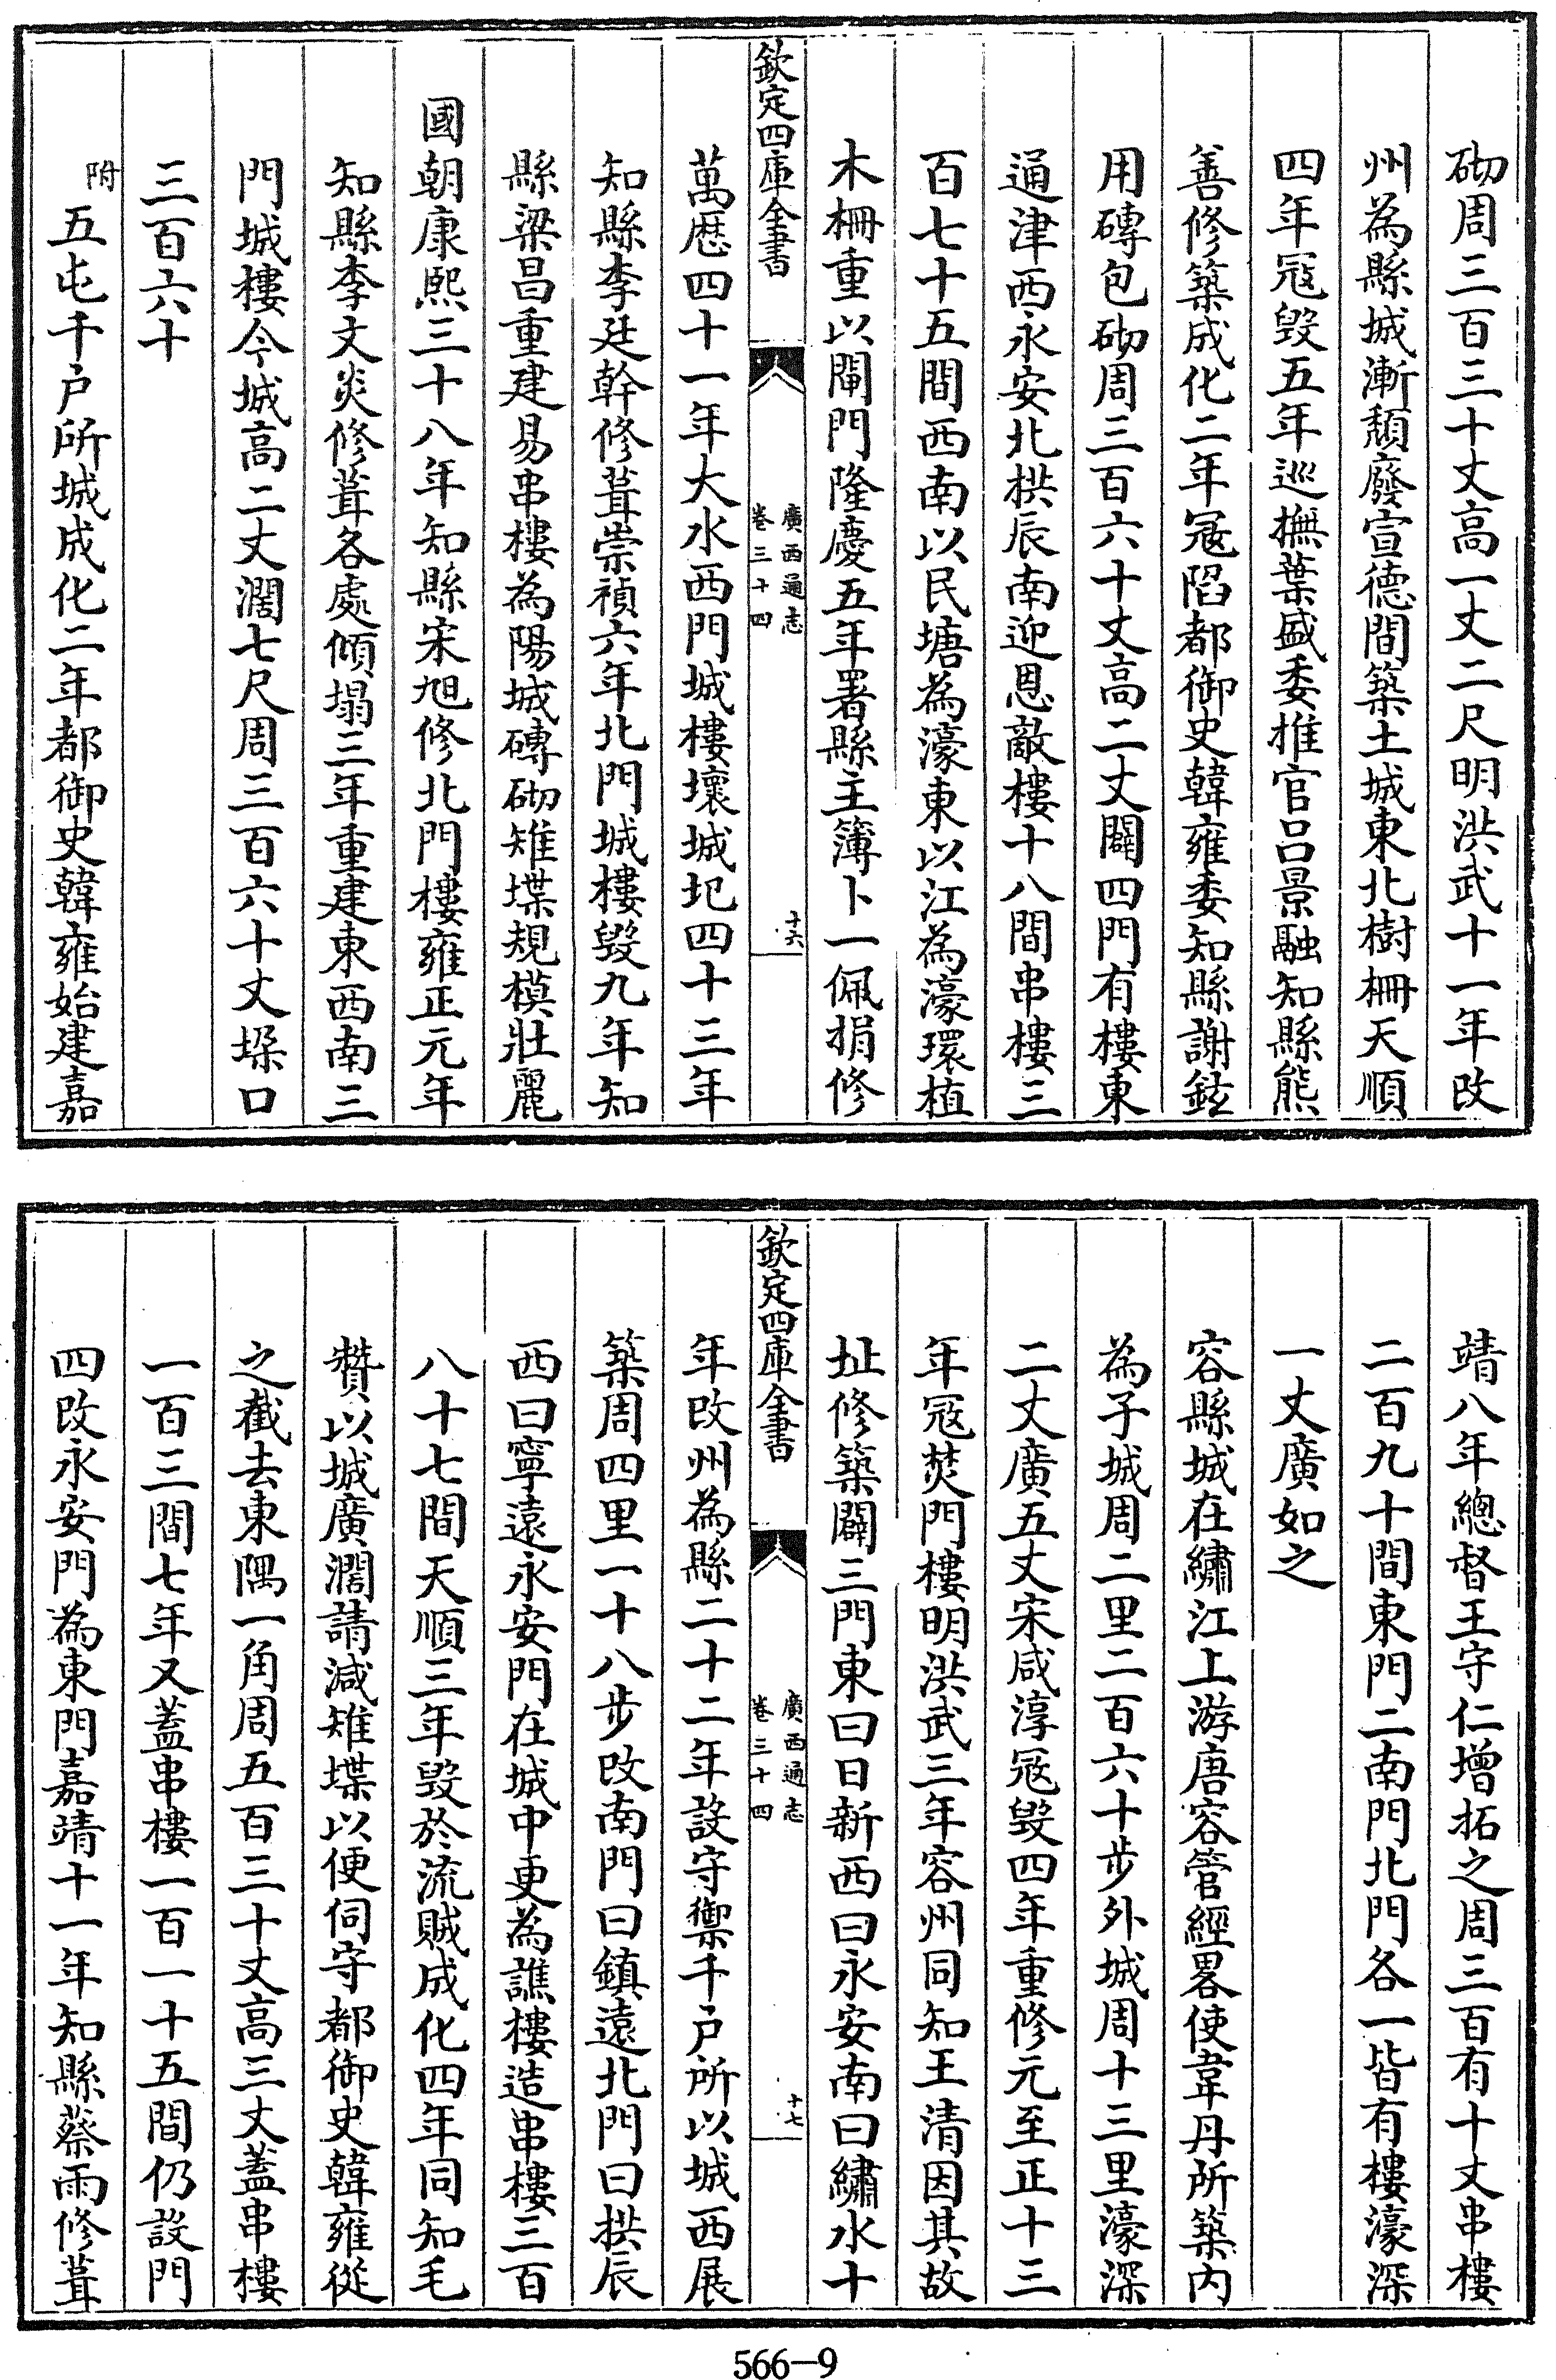 砌周三百三十丈高一丈二尺明洪武十一年改
州為縣城漸頽廢宣德間築土城東北樹柵天順
四年冦毁五年巡撫葉盛委推官吕景融知縣熊
善修築成化二年冦陷都御史韓雍委知縣謝鉉
用磚包砌周三百六十丈高二丈闢四門有樓東
通津西永安北栱辰南迎恩敵樓十八間串樓三
百七十五間西南以民塘為濠東以江為濠環植
木柵重以閘門隆慶五年署縣主簿卜一佩捐修
欽定四庫全書
廣西通志
卷三十四
十六
萬厯四十一年大水西門城樓壞城圯四十三年
知縣李廷幹修葺崇禎六年北門城樓毁九年知
縣梁昌重建易串樓為陽城磚砌雉堞規模壯麗
國朝康熙三十八年知縣宋旭修北門樓雍正元年
知縣李文炎修葺各處傾塌三年重建東西南三
門城樓今城高二丈濶七尺周三百六十丈垜口
三百六十
附五屯千户所城成化二年都御史韓雍始建嘉
靖八年總督王守仁增拓之周三百有十丈串樓
二百九十間東門二南門北門各一皆有樓濠深
一丈廣如之
容縣城在繡江上游唐容管經畧使韋丹所築内
為子城周二里二百六十步外城周十三里濠深
二丈廣五丈宋咸淳冦毁四年重修元至正十三
年冦焚門樓明洪武三年容州同知王清因其故
址修築闢三門東曰日新西曰永安南曰繡水十
欽定四庫全書
廣西通志
卷三十四
十七
年改州為縣二十二年設守禦千户所以城西展
築周四里一十八步改南門曰鎮遠北門曰拱辰
西曰寧遠永安門在城中更為譙樓造串樓三百
八十七間天順三年毁於流賊成化四年同知毛
贊以城廣濶請減雉堞以便伺守都御史韓雍從
之截去東隅一角周五百三十丈高三丈蓋串樓
一百三間七年又蓋串樓一百一十五間仍設門
四改永安門為東門嘉靖十一年知縣蔡雨修葺
566-9